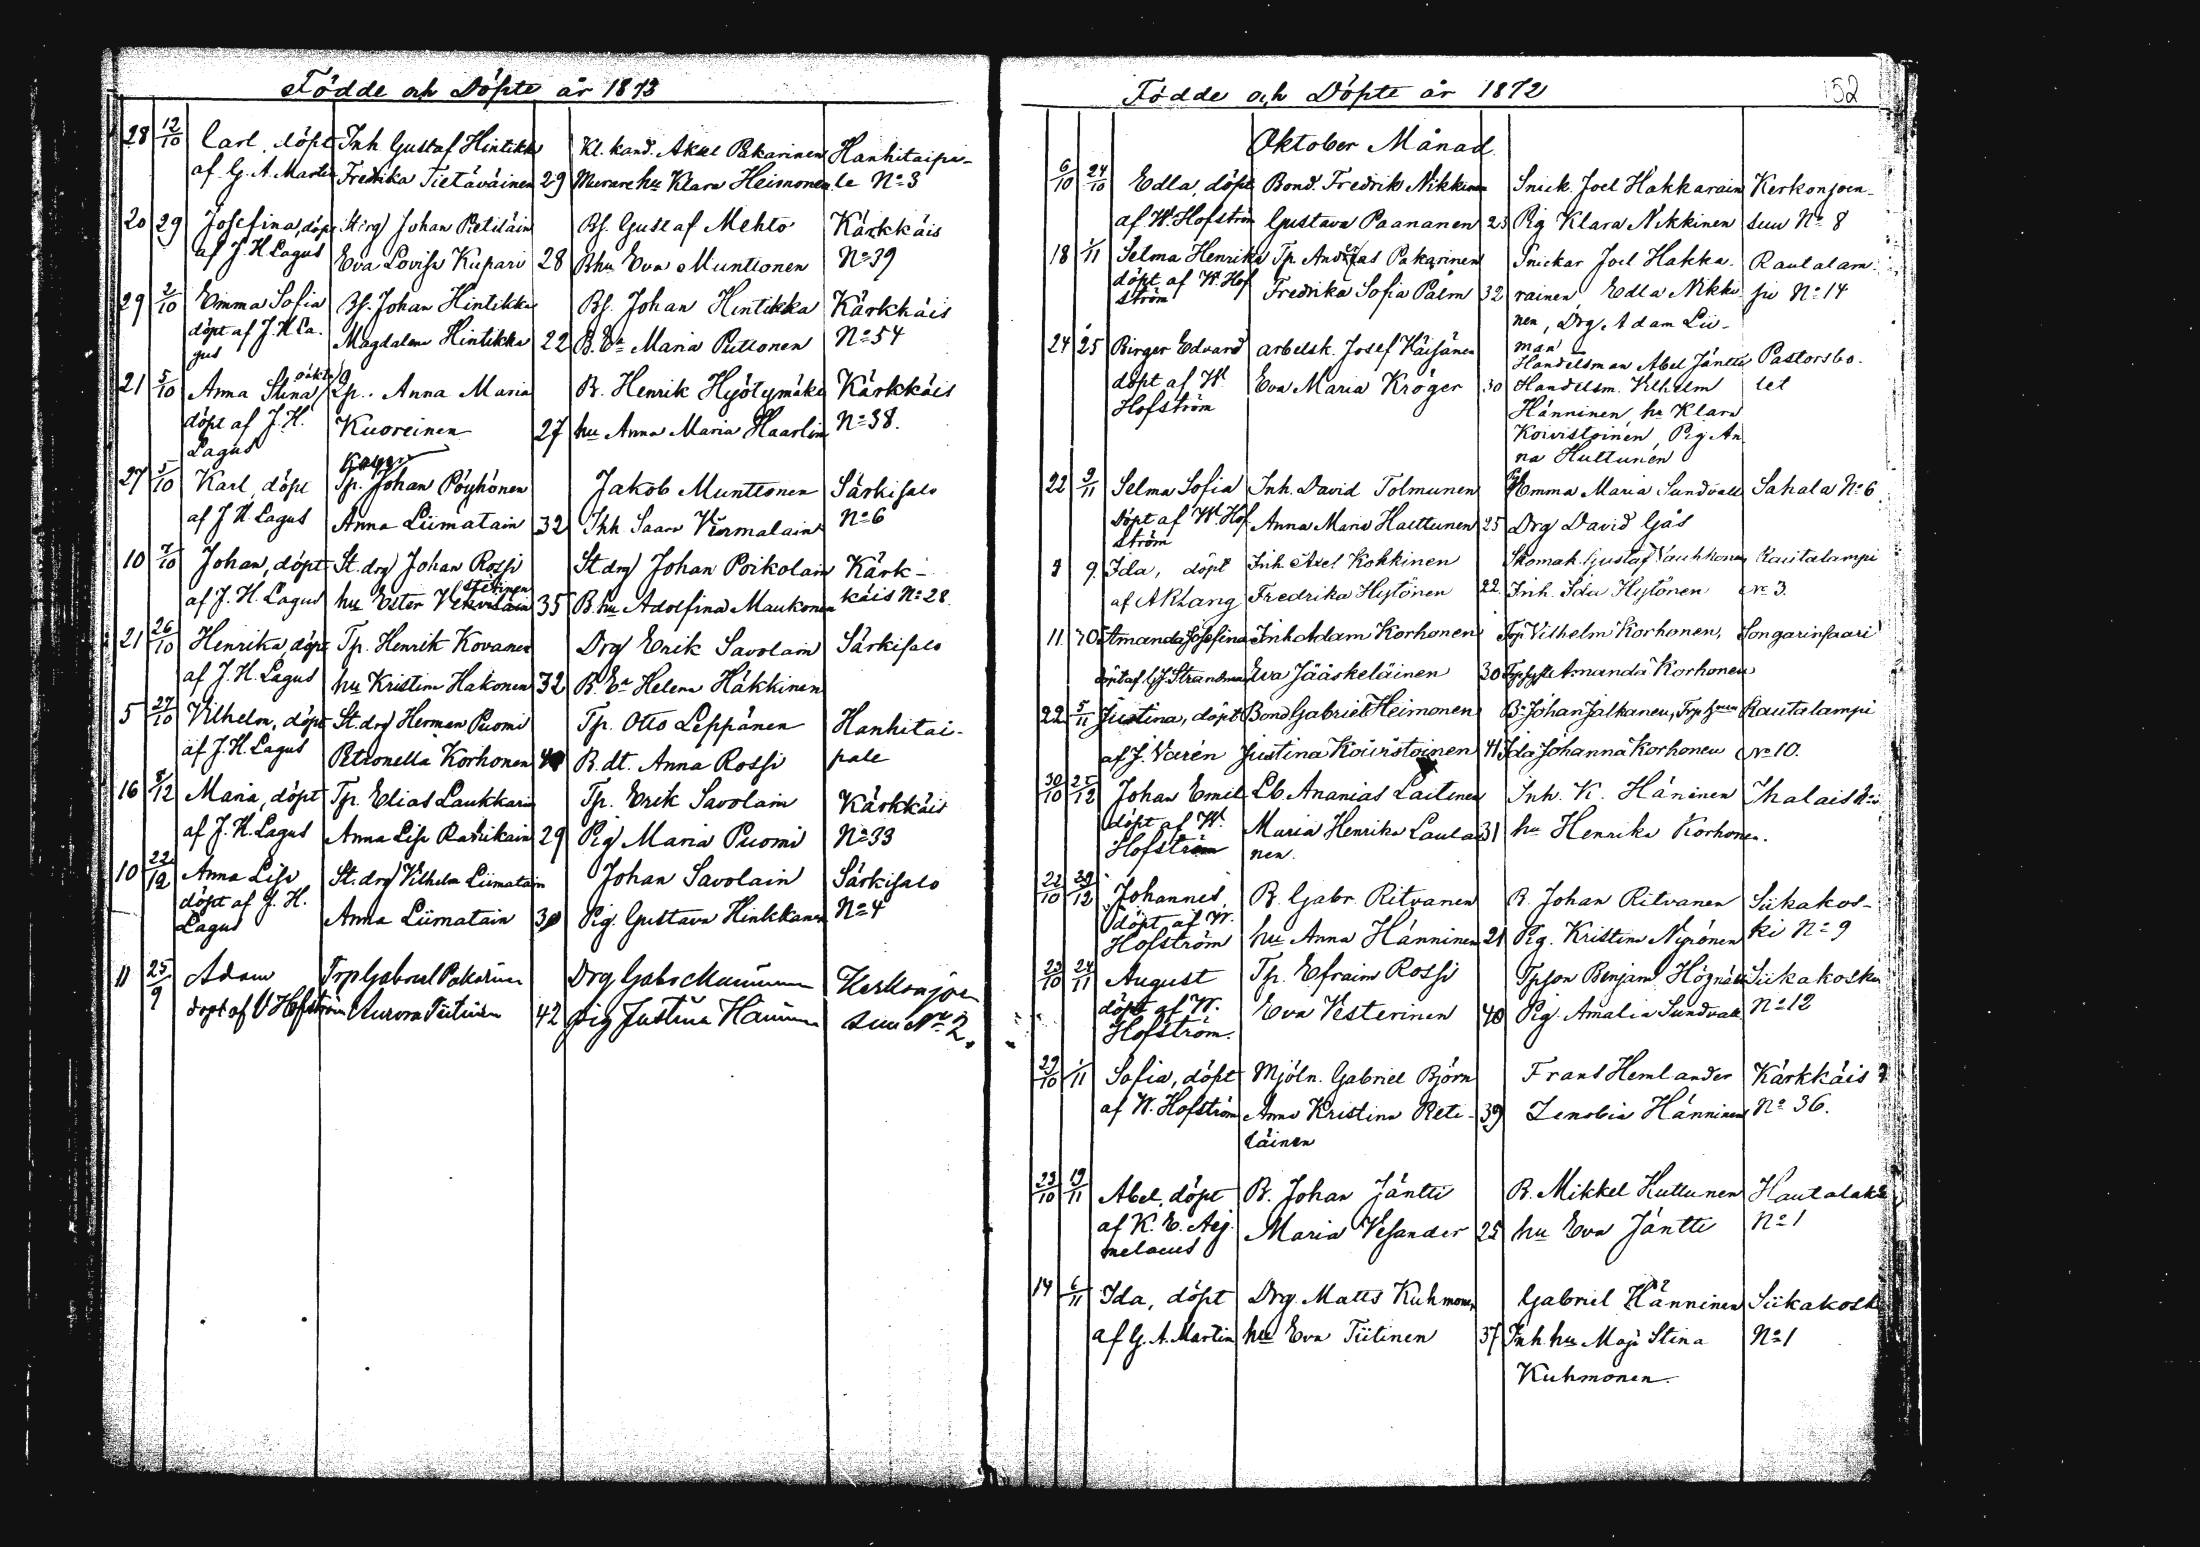 Födde och Döpte år 1873
28 12/10 Carl, döpt Inh Gustaf Hintikka Kl. kand. Akxel Pakarinen Hanhitaipa-
af G. A. Martin Fredrika Tietäväinen 29 Murare hu Klara Heimonen le No 3
20 29 Josefina, döpt St drg Johan Pietiläin Bs. Gustaf Mehto Kärkkäis
af J. H. Lagus Eva Lovisa Kupari 28 Bhu Eva Munttonen No 39
29 2/10 Emma Sofia Bs. Johan Hintikka Bs. Johan Hintikka Kärkkäis
döpt af J. H. La- Magdalena Hintikka 22 B. Ea Maria Puttonen No 54
gus
21 5/10 Anma Stina oäkta Lp. Anna Maria B. Henrik Hyötymäki Kärkkäis
döpt af J. H. Kuoreinen 27 hu Anna Maria Haarlin No 38.
Lagus
27 5/10 Karl, döpt Tp. Johan Pöyhönen Jakob Munttonen Särkisalo
af J. H. Lagus Anna Liimatain 32 Inh Saara Viermalain No 6
10 7/10 Johan, döpt St. drg Johan Rossi St drg Johan Poikolain Kärk-
af J. H. Lagus hu Ester 35 B. hu Adolfina Maukonen käis No 28
21 26/10 Henrika, döpt Tp. Henrik Kovanen Drg Erik Savolain Särkisalo
af J. H. Lagus hu Kristina Hakonen 32 B. Ea Helena Häkkinen
5 27/10 Vilhelm, döpt St. drg Herman Puomi Tp. Otto Leppänen Hanhitai-
af J. H. Lagus Petronella Korhonen 40 B. dt. Anna Rossi pale
16 8/12 Maria, döpt Tp. Elias Laukkarin Tp. Erik Savolain Kärkkäis
af J. H. Lagus Anna Lisa Ratikain 29 Pig Maria Puomi No 33
10 22/12 Anna Lisa St. drg Vilhelm Liimatain Johan Savolain Särkisalo
döpt af J. H. Anna Liimatain 30 Pig. Gustava Hinkkanen No 4
Lagus
11 25/9 Adam Trp Gabriel Pakarinen Drg Gabr Manninen Kerkonjoen
döpt af V Hofström Aurora Tiitinen 42 pig Justina Häninen suu No 2.
Födde och Döpte år 1872 152
Oktober Månad.
6/10 24/10 Edla, döpt Bond. Fredrik Nikkinen Snick. Joel Hakkarain Kerkonjoen-
af W. Hofström Gustava Paananen 23 Pig Klara Nikkinen suu No 8
18 1/11 Selma Henrika Tp. Andreas Pakarinen Snickar Joel Hakka- Rautalam-
döpt af W. Hof Fredrika Sofia Palm 32 rainen, Edla Nikki- pi No 14
ström nen, Drg. Adam Lii-
man
24 25 Birger Edvard arbetsk. Josef Käisänen Handelsman Abel Jäntti Pastorsbo-
döpt af W. Eva Maria Kröger 30 Handelsm. Vilhelm let
Hofström Hänninen, hu Klara
Koivistoinen, Pig An
na Huttunen
22 3/11 Selma Sofia Inh. David Tolmunen Emma Maria Sundvall Sahala No 6
Döpt af W. Hof Anna Maria Huttunen 25 Drg David Gås
ström
3 9. Ida, döpt Inh Axel Kokkinen Skomak. Gustaf Vauhkonen Rautalampi
af A R Lang Fredrika Hytönen 22. Inh. Ida Hytönen No 3.
11 20 Amanda Josefina Inh Adam Korhonen Trp Vilhelm Korhonen, Songarinsaari
döpt af G J. Strandman Eva Jääskeläinen 30 Amanda Korhonen
22 5/11 Justina, döpt Bond Gabriel Heimonen B. Johan Jalkanen, Rautalampi
af J. Varén Justina Koivistoinen 41 Ida Johanna Korhonen No 10.
30/10 25/12 Johan Emil Lb. Ananias Laitinen Inh. K. Häninen Ihalais
döpt af W. Maria Henrika Lauta 31 hu Henrika Korhonen.
Hofström nen.
22/10 29/12 Johannes, B. Gabr. Ritvanen B. Johan Ritvanen Siikakos-
döpt af W. hu Anna Hänninen 21 Pig. Kristina Nyrönen ki No 9
Hofström
23/10 24/11 August Tp. Efraim Rossi Tpson Benjam. Högnäs Siikakoski
döpt af W. Eva Vesterinen 40 Pig. Amalia Sundvall No 12
Hofström.
29/10 1/11 Sofia, döpt Mjöln. Gabriel Björn Frans Hemlander Kärkkäis
af W. Hofström Anna Kristina Pieti- 39 Zenobia Hänninen No 36.
läinen
23/10 19/11 Abel, döpt B. Johan Jäntti B. Mikkel Huttunen Hautalaks
af K. E. Aej- Maria Vesander 25 hu Eva Jäntti No 1
melaeus
14 6/11 Ida, döpt Drg. Matts Kuhmonen Gabriel Hänninen Siikakoski
af G. A. Martin hu Eva Tiitinen 37 Inh. hu Maja Stina No 1
Kuhmonen.